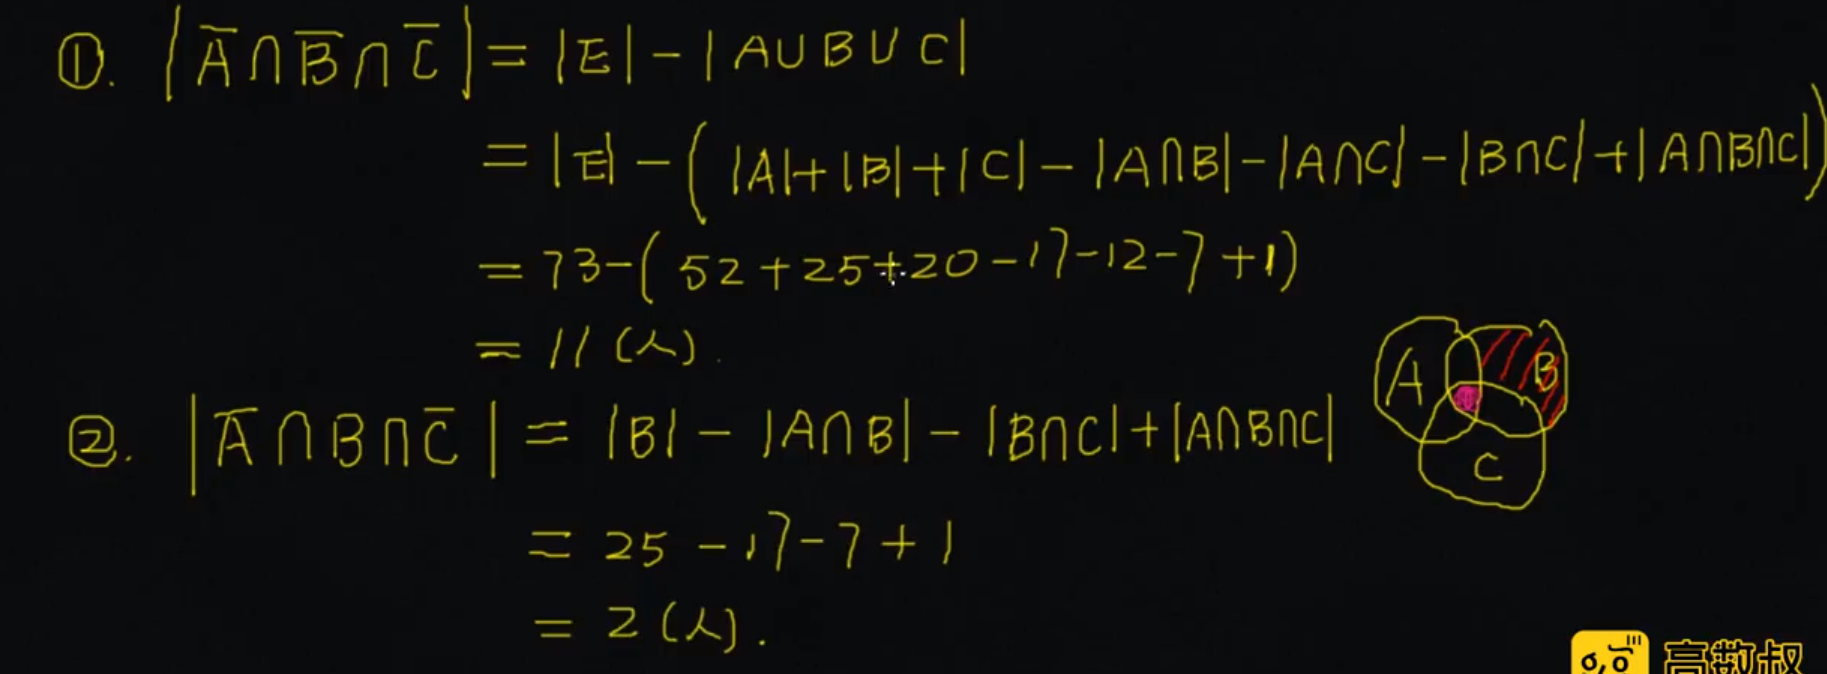 ①. |A̅∩B̅∩C̅| = |E| - |A∪B∪C|
= |E| - (|A|+|B|+|C| - |A∩B| - |A∩C| - |B∩C| + |A∩B∩C|)
= 73-(52+25+20-17-12-7+1)
= 11(人).
A B
C
②. |A̅∩B∩C̅| = |B| - |A∩B| - |B∩C| + |A∩B∩C|
= 25-17-7+1
= 2(人).
高数叔